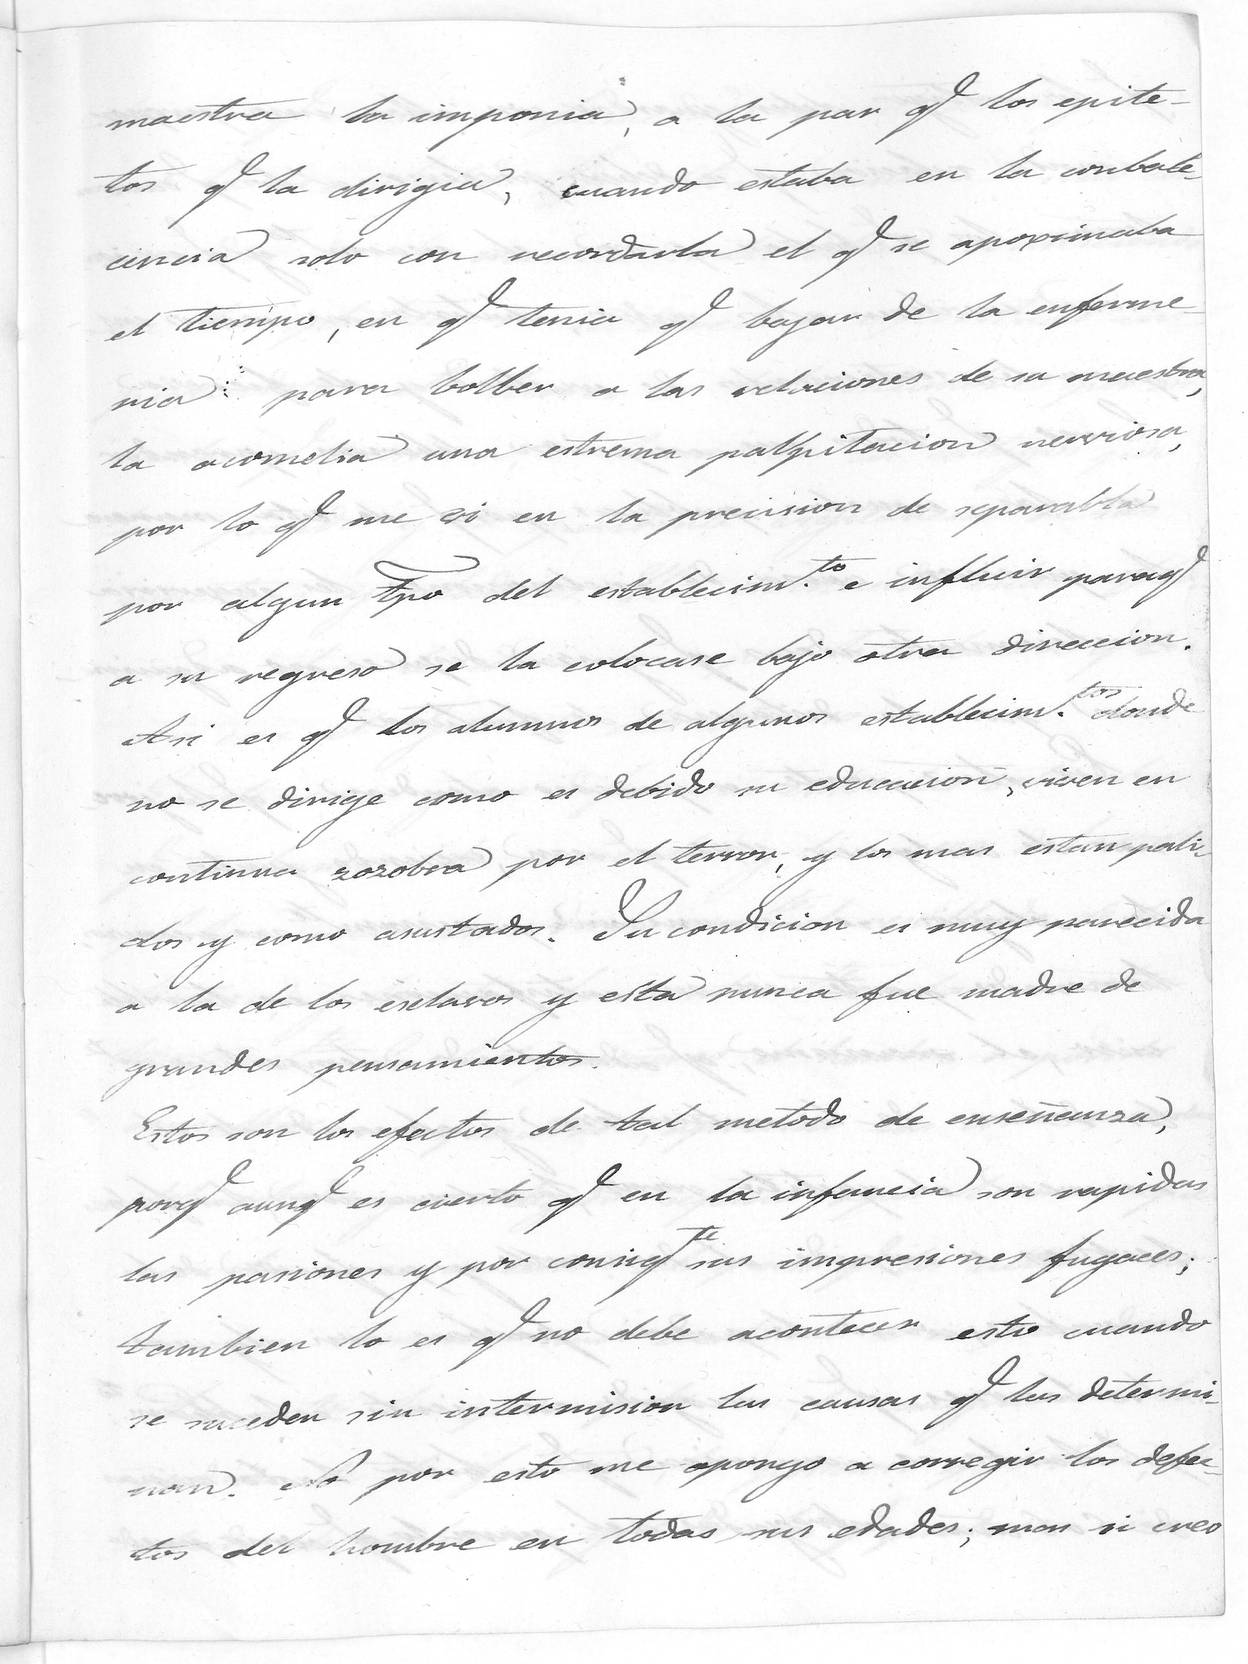 maestra la imponia, a la par q.e los epite-
tos q.e la dirigia, cuando estaba en la conbale-
cincia solo con recordarla el q.e se aproximaba
el tiempo, en q.e tenia q.e bajar de la enferme-
ria para bolber a las relaciones de su maestra,
la acometia una estrema palpitacion nerviosa,
por lo q.e me vi en la precision de separabla
por algun tpo del establecim.to e influir paraq.e
a su regreso se la colocase bajo otra direccion.
Asi es q.e los alumnos de algunos establecim.tos donde
no se dirige como es debido su educacion, viven en
continua zozobra por el terror, y los mas estan pali-
dos y como asustados. Su condicion es muy parecida
a la de los esclavos y esta nunca fue madre de
grandes pensamientos.
Estos son los efectos de tal metodo de enseñanza,
porq.e aunq.e es cierto q.e en la infancia son rapidas
las pasiones y por consiq.te sus impresiones fugaces;
tambien lo es q.e no debe acontecer esto cuando
se suceden sin intermision las causas q.e las determi-
nan. No por esto me opongo a corregir los defec-
tos del hombre en todas sus edades; mas si creo